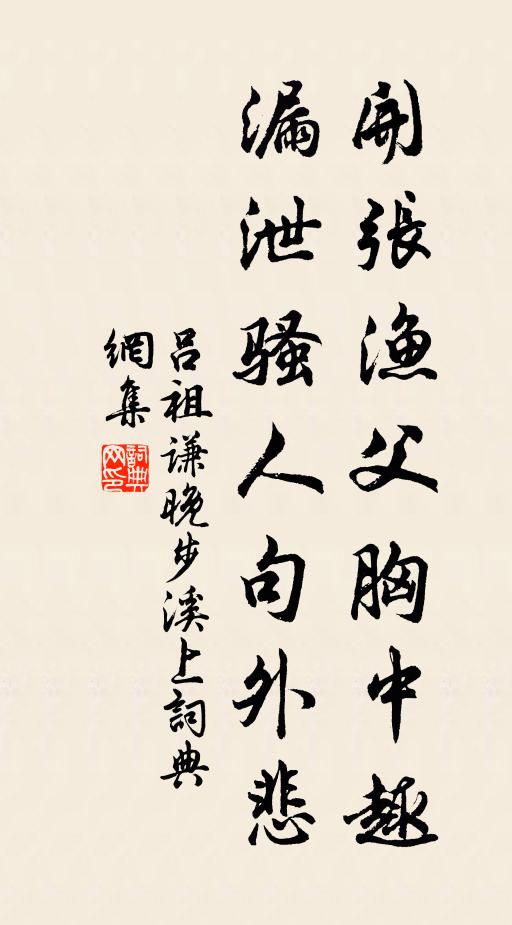 開張漁父胸中趣
漏泄騷人句外悲
呂祖謙晚步溪上詞典
網集
詞典網印